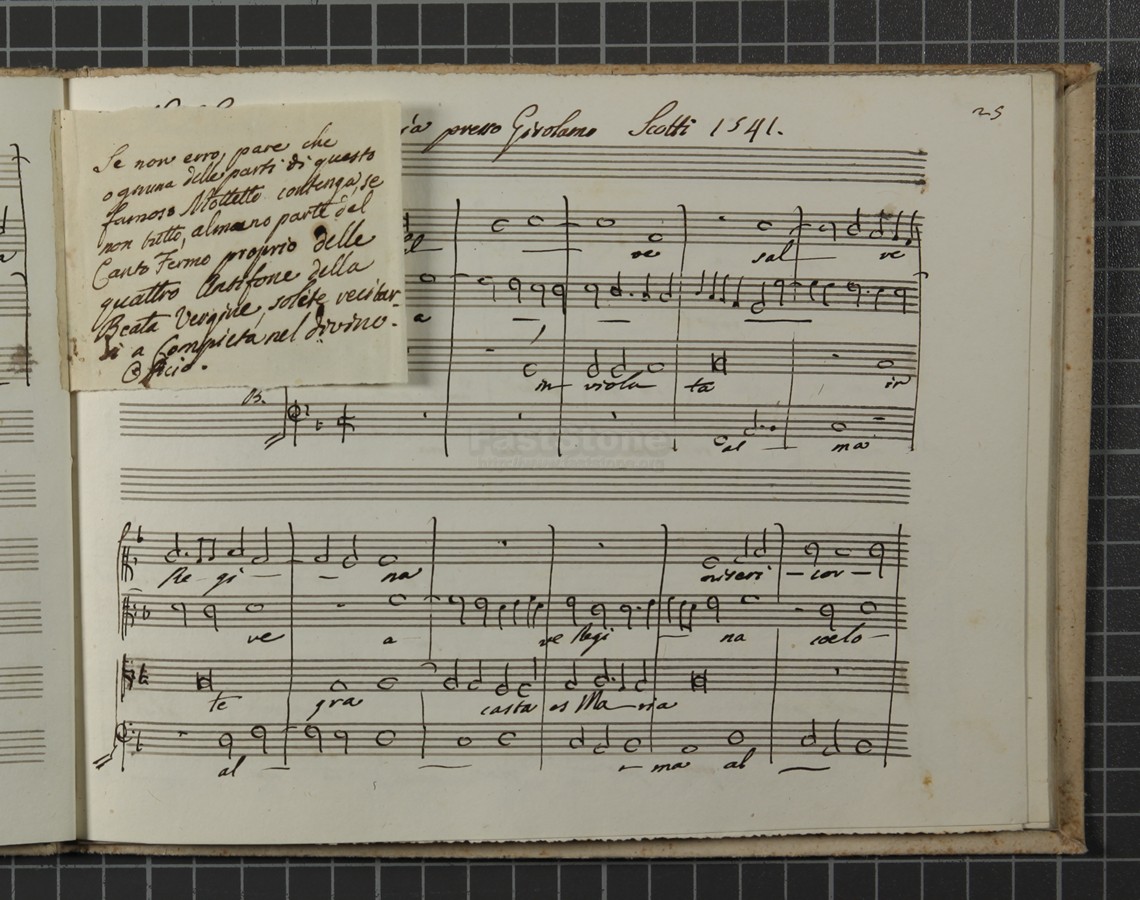 presso Girolamo Scotti 1541.
25
Se non erro, pare che
ognuna delle parti di questo
famoso Mottetto contenga, se
non tutto, almeno parte del
Canto Fermo proprio delle
quattro Antifone della
Beata Vergine, solite recitar-
si a Compieta nel divino
Officio.
ve sal ve
a
in viola ta in
B.
al ma
FastStone
Re gi na miseri cor
ve a ve Regi na coelo
te gra casta es Maria
al ma al